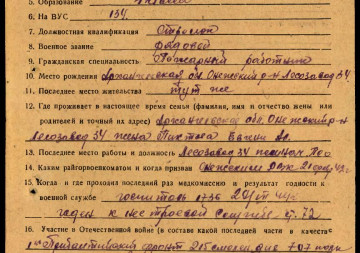 5. Образование
6. На ВУС 134
7. Должностная квалификация Стрелок
8. Военное звание рядовой
9. Гражданская специальность Пожарный работник
10. Место рождения Архангельская об. Онежский р-н Лесозавод 34
11. Последнее место жительства тут же
12. Где проживает в настоящее время семья (фамилия, имя и отчество жены или
родителей и точный их адрес) Архангельская обл. Онежский р-н
Лесозавод 34 жена
13. Последнее место работы и должность Лесозавод 34
14. Каким райгорвоенкоматом и когда призван Онежским
15. Когда и где проходил последний раз медкомиссию и результат годности к
военной службе госпиталь 1736
годен к нестроевой службе
16. Участие в Отечественной войне (в составе какой последней части и в качестве
1й Прибалтийский фронт 215 707